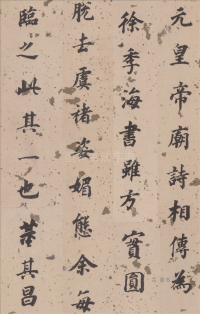 元皇帝廟詩相傳為
徐季海書雖方實圓
脫去虞褚姿媚態余每
臨之此其一也董其昌